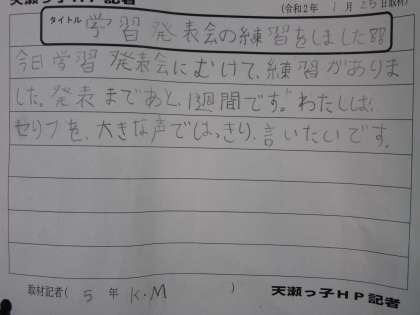 天瀬っ子HP記者
(令和2年 1月25日取材)
タイトル 学習発表会の練習をしました
今日学習発表会にむけて、練習がありま
した。発表まであと、1週間です。わたしは、
セリフを、大きな声ではっきり、言いたいです。
取材記者( 5 年 K.M )
天瀬っ子HP記者